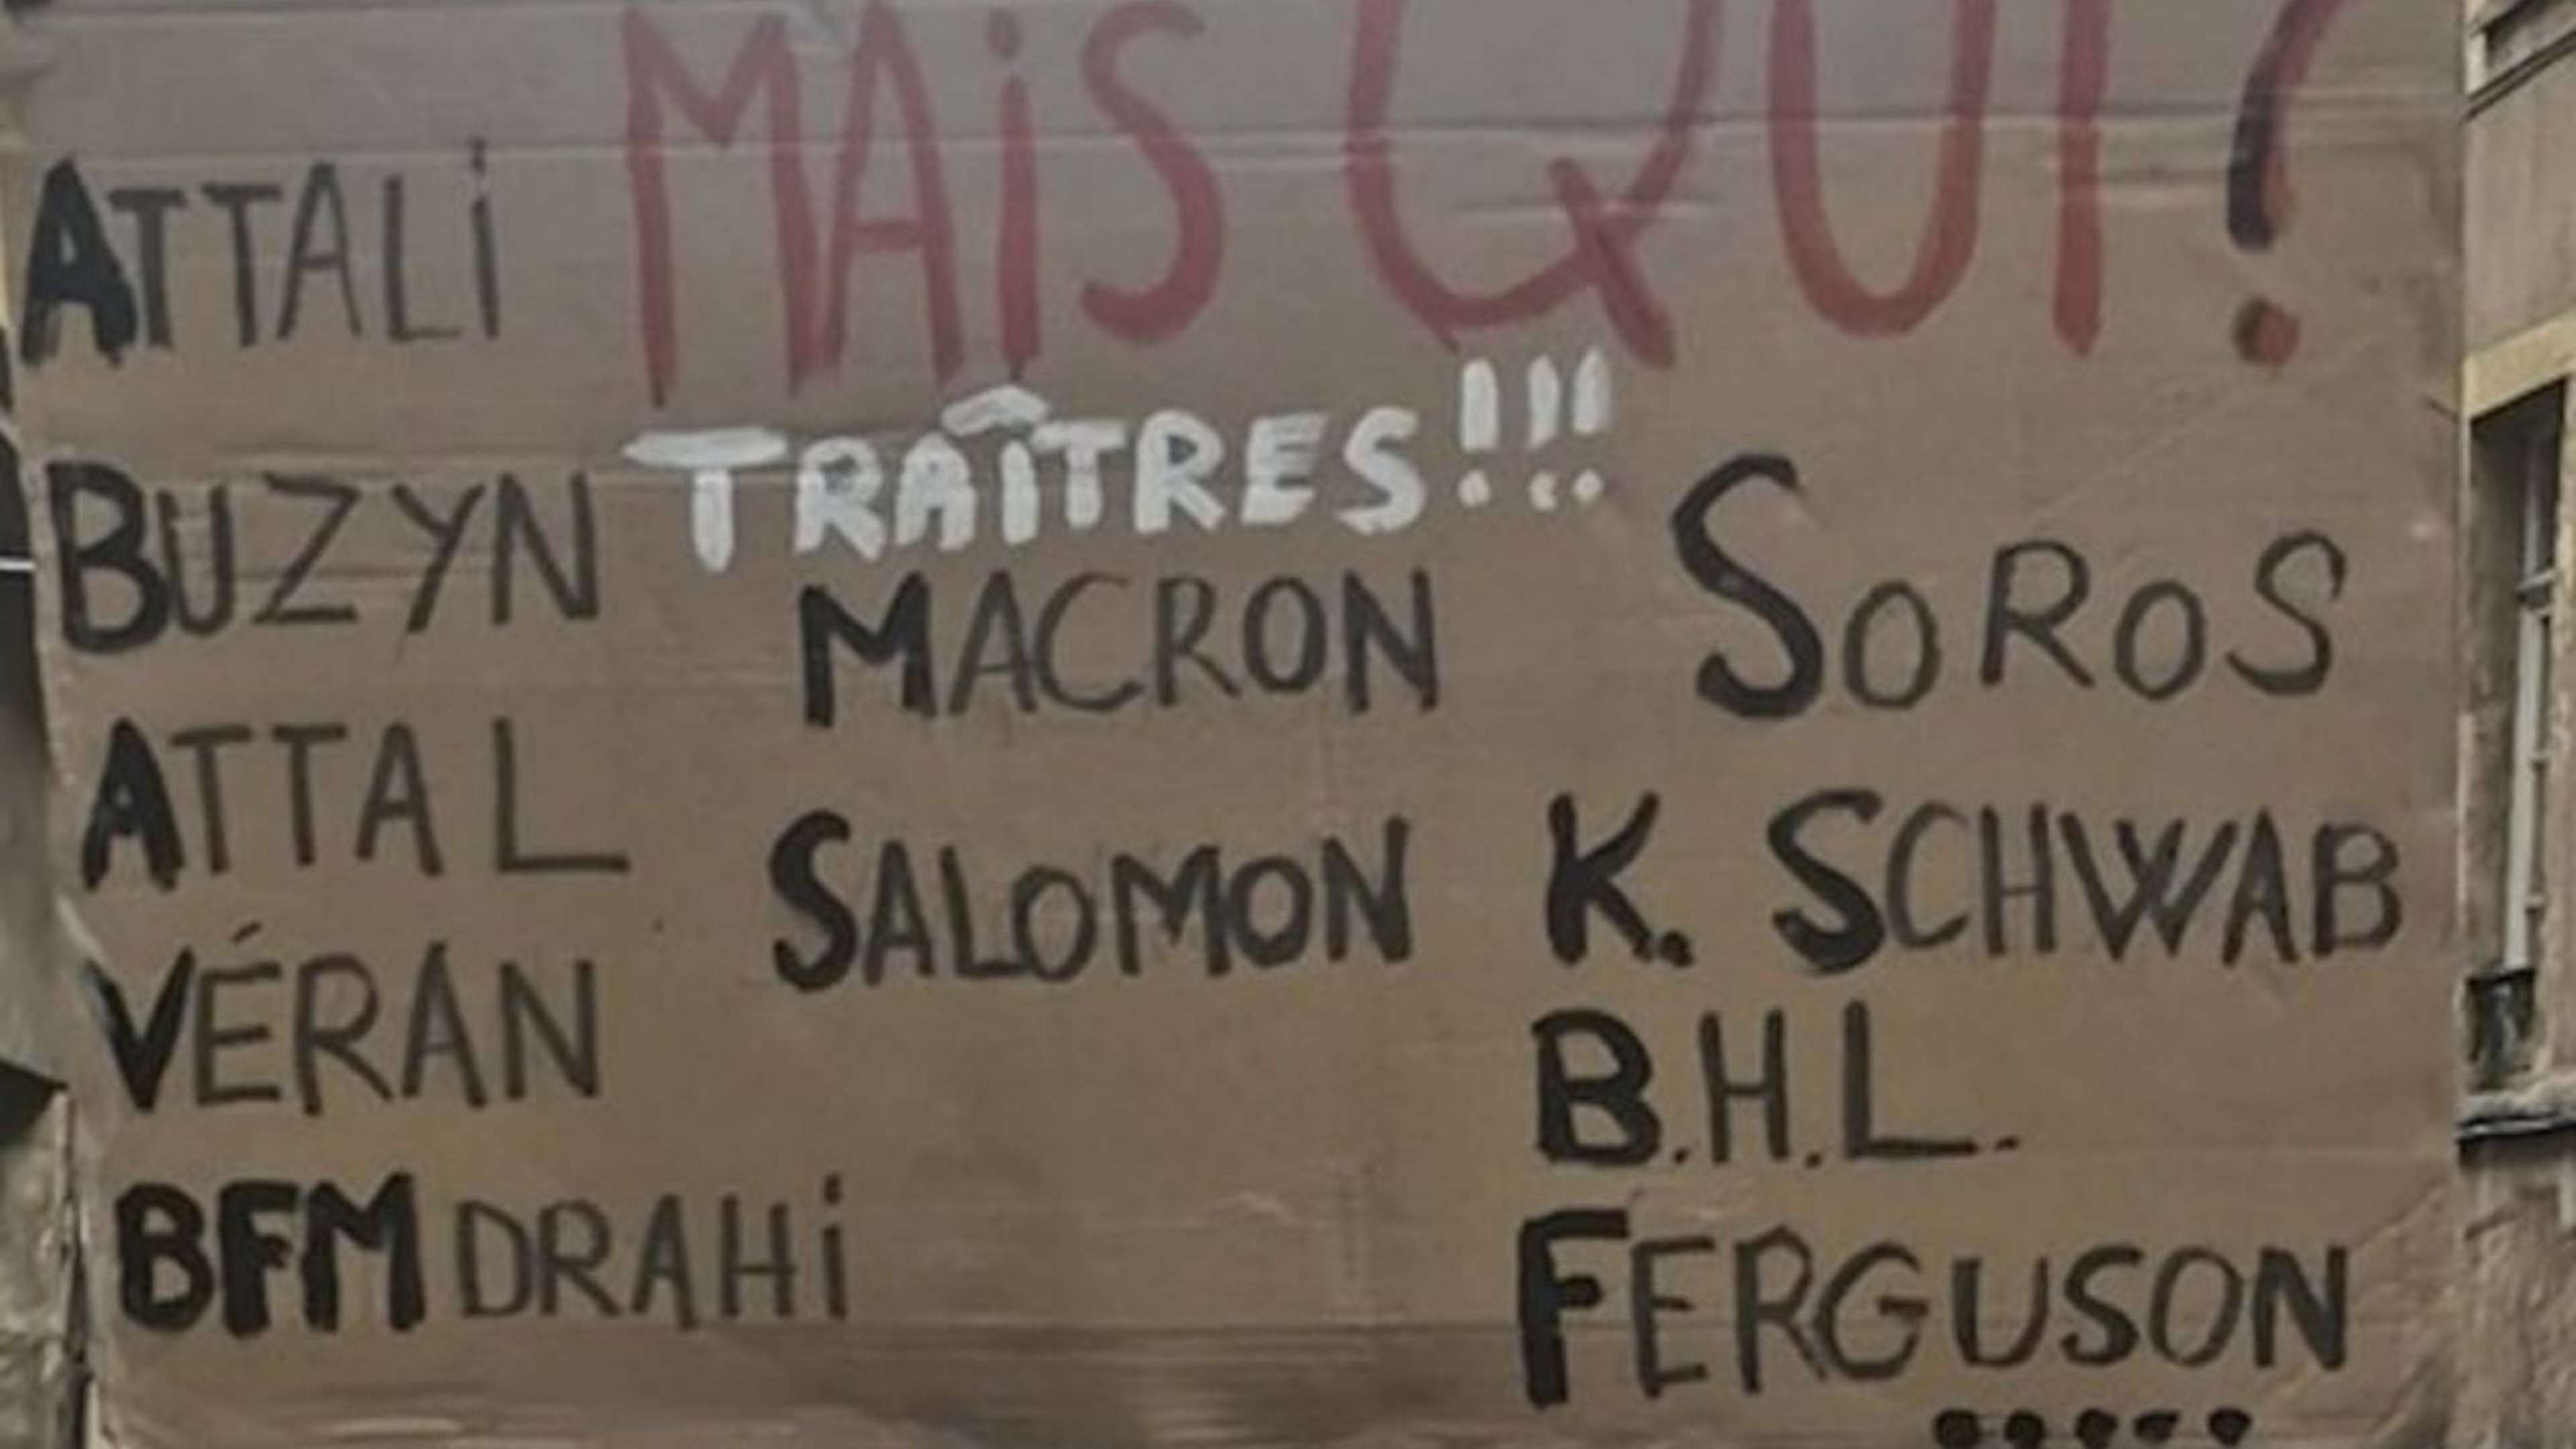 MAiS QUI?
ATTALi
TRAÎTRES!!!
BUZYN
MACRON
SOROS
ATTAL
SALOMON
K. SCHWAB
VÉRAN
B.H.L.
BFM DRAHi
FERGUSON
.....